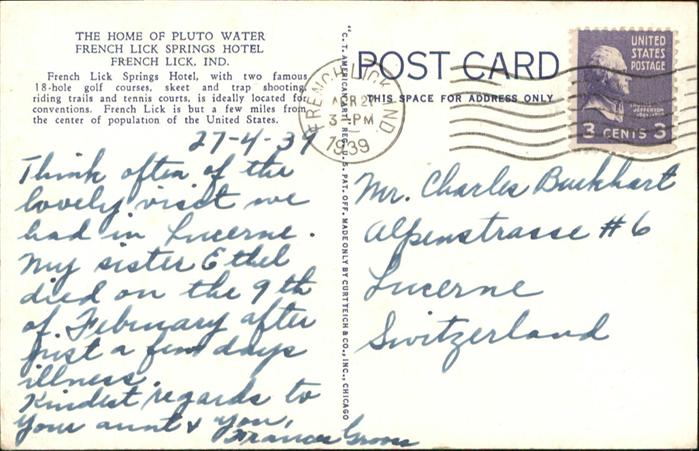 THE HOME OF PLUTO WATER
FRENCH LICK SPRINGS HOTEL
FRENCH LICK, IND.
French Lick Springs Hotel, with two famous
18-hole golf courses, skeet and trap shooting,
riding trails and tennis courts, is ideally located for
conventions. French Lick is but a few miles from
the center of population of the United States.
27-4-39
Think often of the
lovely visit we
had in Lucerne.
My sister Ethel
died on the 9th
of February after
just a few days
illness.
Kindest regards to
your aunt & you,
Frances Gross
"C. T. AMERICAN ART" REG. U. S. PAT. OFF. MADE ONLY BY CURT TEICH & CO., INC., CHICAGO
POST CARD
THIS SPACE FOR ADDRESS ONLY
FRENCH LICK, IND.
APR 27
3-PM
1939
UNITED
STATES
POSTAGE
JEFFERSON
3 CENTS 3
Mr. Charles Burkhart
Alpenstrasse #6
Lucerne
Switzerland